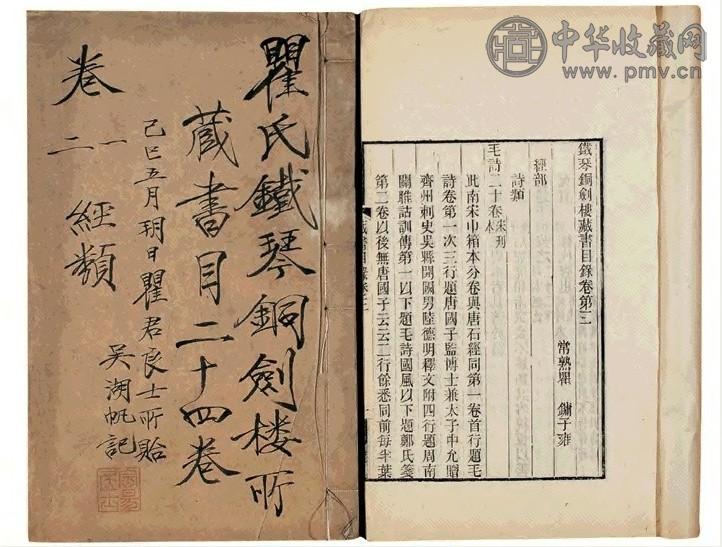 中华收藏网
www.pmv.cn
瞿氏鐵琴銅劍楼所
藏書目二十四卷
己巳五月玥日瞿君良士所貽
吴湖帆記
卷
一
二
經類
鐵琴銅劍樓藏書目錄卷第三
常熟瞿 鏞子雍
經部
詩類
毛詩二十卷宋刊本
此南宋巾箱本分卷與唐石經同第一卷首行題毛
詩卷第一次三行題唐國子監博士兼太子中允贈
齊州刺史吳縣開國男陸德明釋文附四行題周南
關雎詁訓傳第一以下題毛詩國風以下題鄭氏箋
第二卷以後無唐國子云云二行餘悉同前每半葉